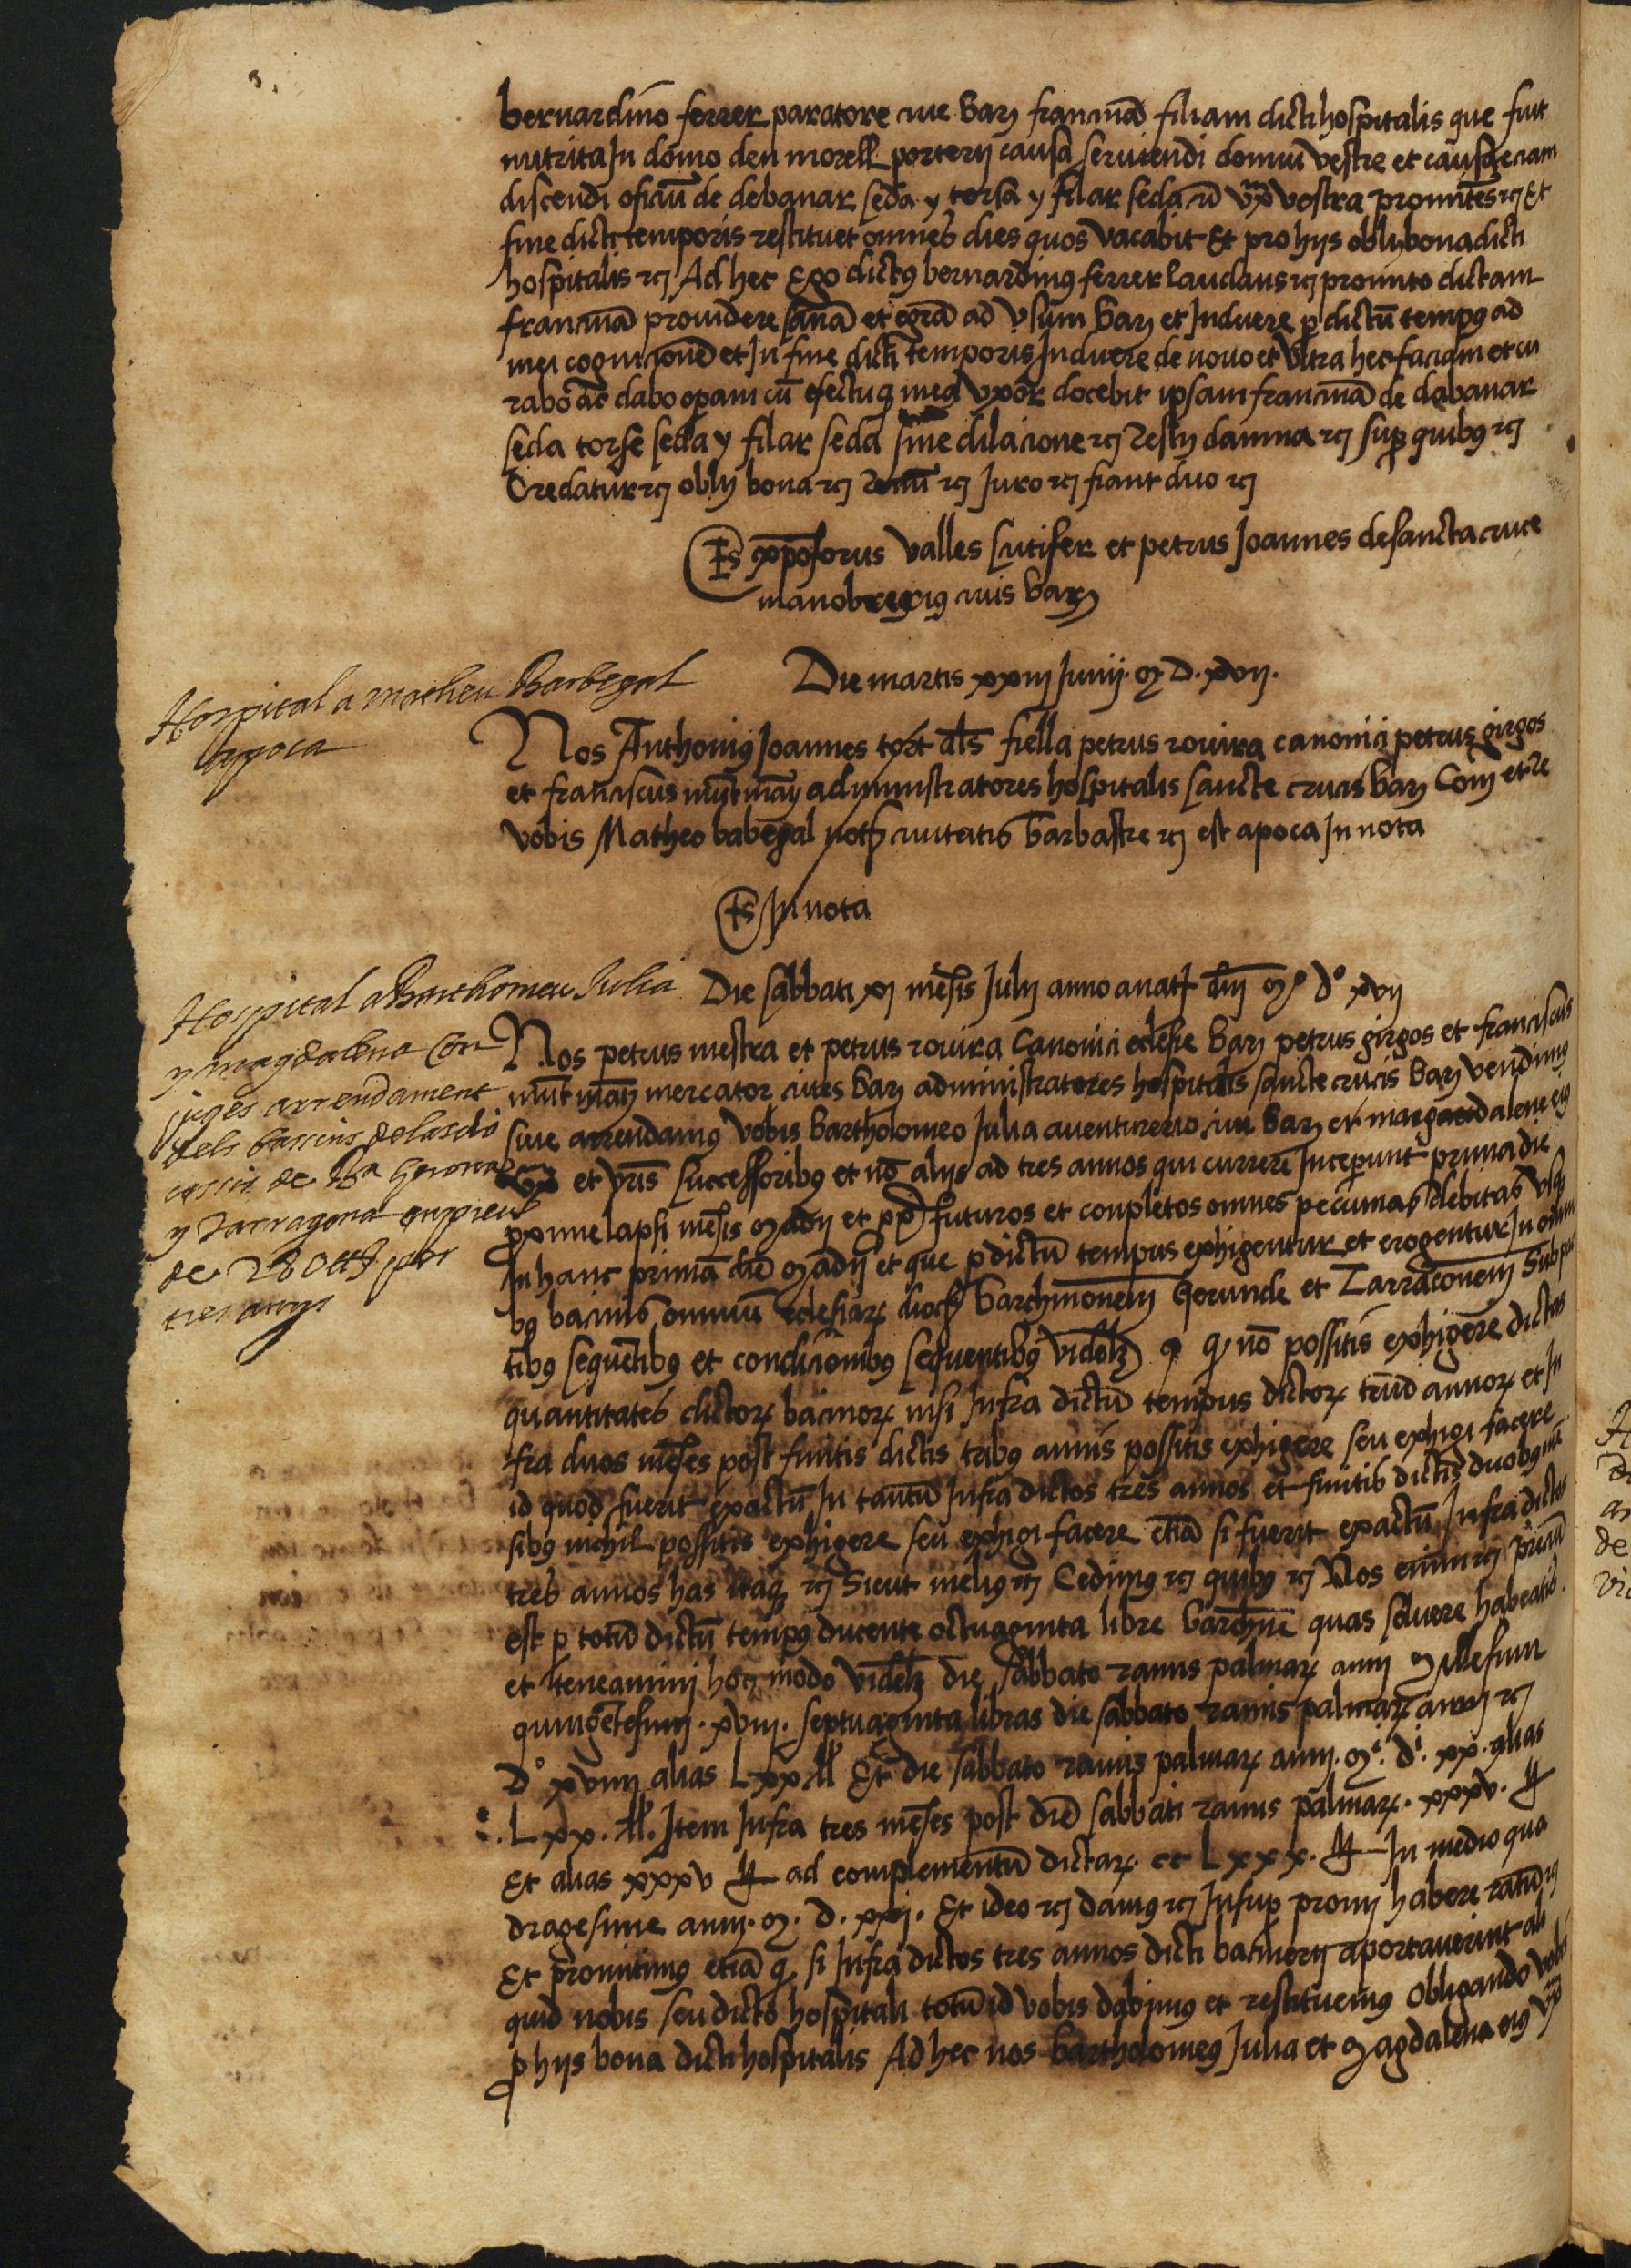 bernardino ferrer paratore cive barn francinã filiam dicti hospitalis que fuit
nutrita In domo den morell porterij causa serviendi domui vestre et causa eciam
discendi oficiũ de debanar seda y torsa y filar seda cũ vxor vestra promitẽs rcͥ Et
fine dicti temporis restituet omnes dies quos vacabit Et pro hijs oblij bona dicti
hospitalis rcͥ Ad hec Ego dictꝰ bernardinꝰ ferrer laudans rcͥ promito dictam
francinã providere sanã et egrã ad vsum barn et Induere ꝑ dictũ tempꝰ ad
mei cognicionẽ et In fine dicti temporis Induere de novo et vltra hec faciam et cu
rabo ac dabo operam cũ efectu qꝫ mea vxor docebit ipsam francinã de debanar
seda torse seda y filar seda sine dilacione rcͥ restij damna rcͥ sup quibꝰ rcͥ
Credatur rcͥ oblij bona rcͥ rcͥ Juro rcͥ fiant duo rcͥ
Ts xpoforus valles sutifer et petrus Joannes de sancta cruce
manobrerius civis barn
Hospital a matheu Barbegal
apoca
Die martis xxiij Junij. M. D. xvij.
Nos Anthoniꝰ Joannes tort als fiella petrus rovira canonici petrus girgos
et franciscus muntmany administratores hospitalis sancte crucis barn Com et re
vobis Matheo babegal civitatis barbastre rcͥ est apoca In nota
Ts In nota
Hospital a Barthomeu Julia
y magdalena Con
juges arrendament
dels bassins
de Bna Gerona
y Tarragona en preu
de 280 ll per
tres anys
Die sabbati xj mẽsis Julij anno a natͭ dnj Mº Dº xvij
Nos petrus mestra et petrus rovira Canonici eclesie barn petrus girgos et franciscus
munt many mercator cives barn administratores hospitalis sancte crucis barn vendimꝰ
sive arrendamꝰ vobis bartholomeo Julia aventurerio civi barn et magdalene eiꝰ
et vris successoribꝰ et nõ alijs ad tres annos qui currere Inceperunt prima die
ꝓxime lapsi mẽsis Madij et futuros et conpletos omnes pecunias debitas vsqꝫ
In hanc primã diẽ Madij et que ꝑ dictũ tempus exhigentur et erogentur In omni
bꝰ bacinis omniũ eclesiarꝝ diocs barchinonenͥ Gerunde et Tarraconenͥ Sub pac
tibꝰ sequẽtibꝰ et condicionibꝰ sequentibꝰ videlꝫ qꝫ nõ possitis exhigere dictas
quantitates dictorꝝ bacinorꝝ nisi Infra dictũ tempus dictorꝝ triũ annorꝝ et In
fra duos mẽses post finitis dictis tribꝰ annis possitis exhigere seu exhigi facere
id quod fuerit exactũ In tantũ Infra dictos tres annos et finitis dictis duobꝰ mẽ
sibꝰ nichil possitis exhigere seu exhigi facere etiã si fuerit exactũ Infra dictos
tres annos has itaqꝫ rcͥ Sicut meliꝰ rcͥ Cedimꝰ rcͥ quibꝰ rcͥ Nos enim rcͥ preciũ
est ꝑ totũ dictũ tempꝰ ducente octuaginta libre barchinẽ quas solvere habeatis
et teneamini hoc modo videlꝫ die sabbato ramis palmarꝝ anni Millesimi
quingẽtesimi. xviij. septuaginta libras die sabbato ramis palmarꝝ anni rcͥ
Dº xviiij alias Lxx ll Et die sabbato ramis palmarꝝ anni. Mͥ. Dͥ. xx. alias
. Lxx. ll. Item Infra tres mẽses post diẽ sabbati ramis palmarꝝ. xxxv. ll
Et alias xxxv ll ad complementũ dictarꝝ. cc Lxxx. ll In medio qua
dragesime anni. M. D. xxj. Et ideo rcͥ damꝰ rcͥ Insup promi habere ratũ rcͥ
Et promitimꝰ etiã qꝫ si Infra dictos tres annos dicti bacinerij aportaverint ali
quid nobis seu dicto hospitali totũ id vobis dabimꝰ et restituemꝰ obligando vobis
ꝓ hijs bona dicti hospitalis Ad hec nos bartholomeꝰ Julia et Magdalena eiꝰ vxor